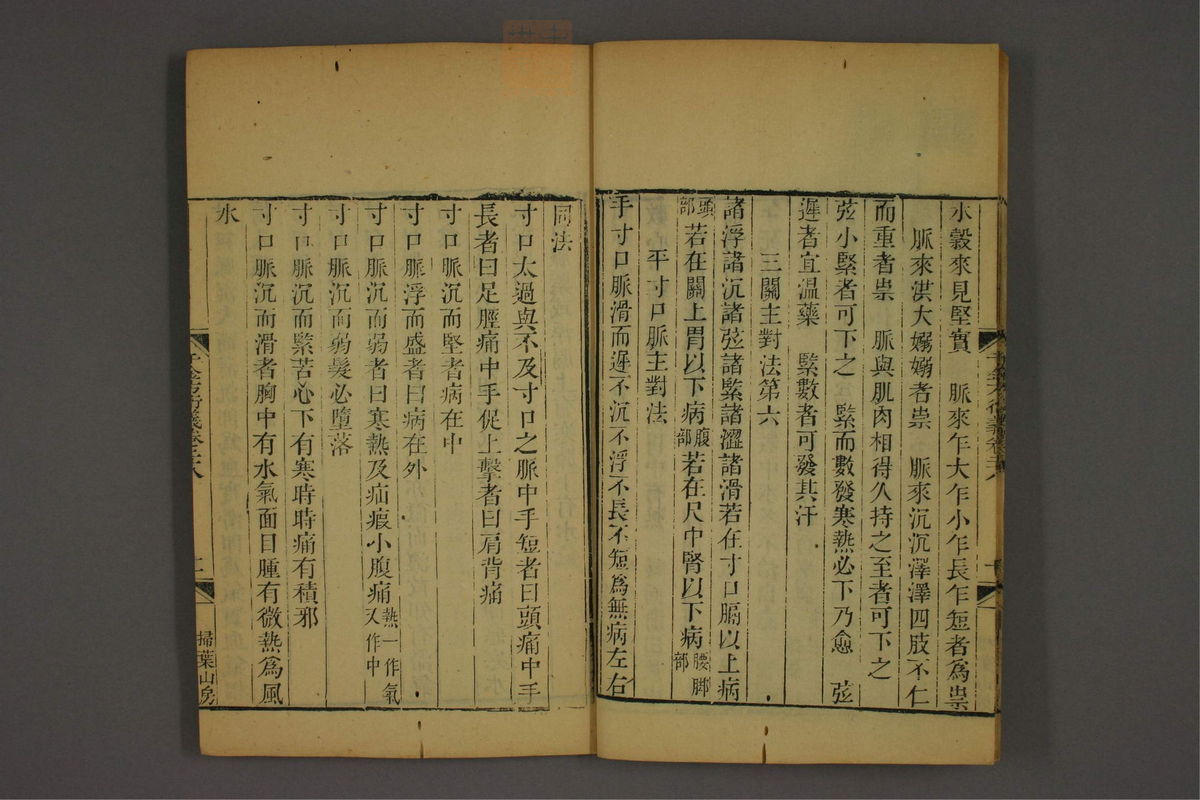 水穀來見堅實　脈來乍大乍小乍長乍短者為祟
脈來洪大嫋嫋者祟　脈來沉沉澤澤四肢不仁
而重者祟　脈與肌肉相得久持之至者可下之
弦小緊者可下之　緊而數發寒熱必下乃愈　弦
遲者宜温藥　緊數者可發其汗
三關主對法第六
諸浮諸沉諸弦諸緊諸澀諸滑若在寸口膈以上病
頭部若在關上胃以下病腹部若在尺中腎以下病腰脚部
平寸口脈主對法
手寸口脈滑而遲不沉不浮不長不短為無病左右
同法
寸口太過與不及寸口之脈中手短者曰頭痛中手
長者曰足脛痛中手促上擊者曰肩背痛
寸口脈沉而堅者病在中
寸口脈浮而盛者曰病在外
寸口脈沉而弱者曰寒熱及疝瘕小腹痛熱一作氣又作中
寸口脈沉而弱髮必墮落
寸口脈沉而緊苦心下有寒時時痛有積邪
寸口脈沉而滑者胸中有水氣面目腫有微熱為風
水
千金方衍義卷二十八
掃葉山房